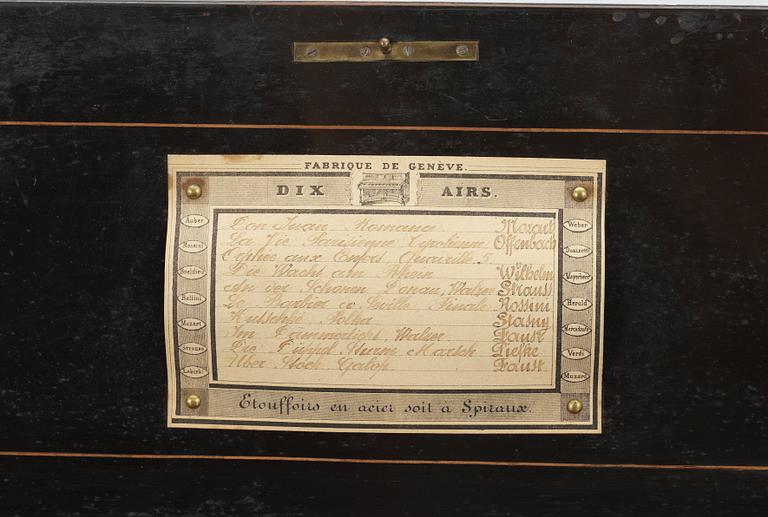 FABRIQUE DE GENÈVE.
DIX AIRS.
Auber
Rossini
Boeldieu
Bellini
Mozart
Strauss
Labitzki
Don Juan Romance Mozart
La Vie Parisienne Tyrolienne Offenbach
Orphée aux Enfers, Quadrille 5
Die Wacht am Rhein Wilhelm
An der Schönen Donau, Walzer Strauss
Le Barbier de Seville Finale Rossini
Kutschke Polka Stasny
Im Dammerlicht, Walzer Faust
Die Sturm Marsch Liefke
Uber Stock Galop Faust
Weber
Donizetti
Meyerbeer
Herold
Mercadante
Verdi
Musard
Etouffoirs en acier soit à Spiraux.